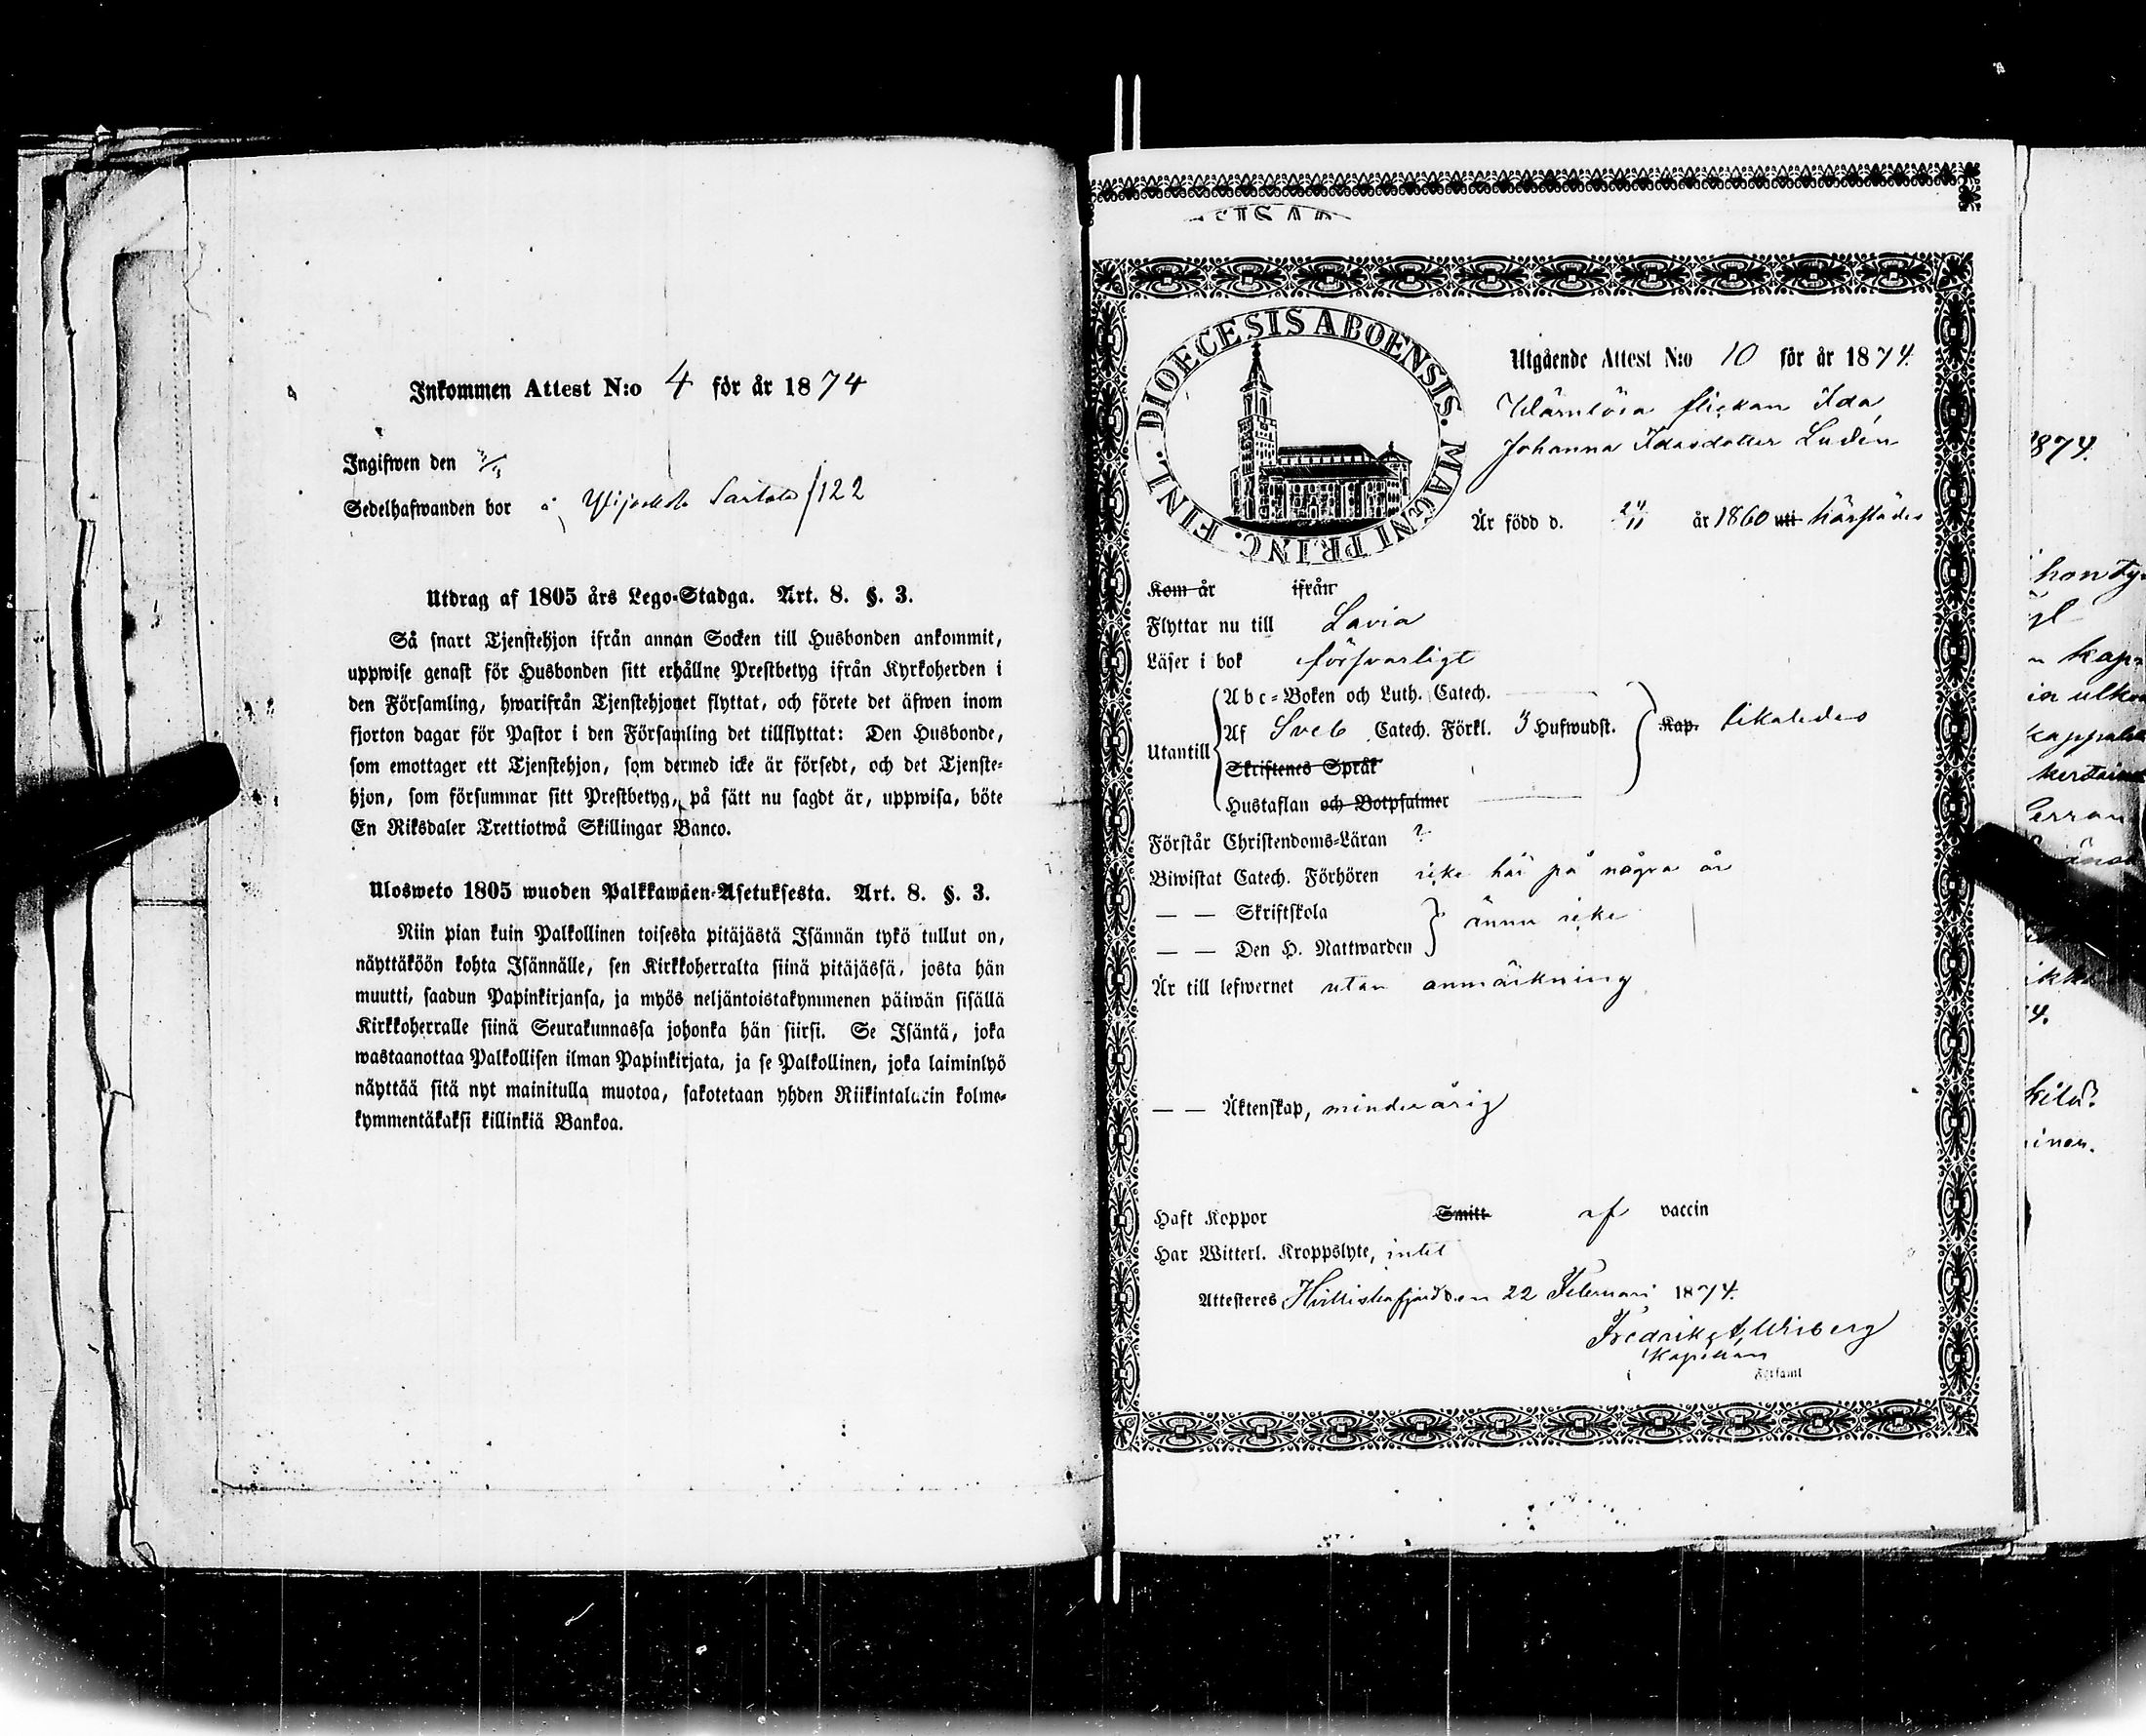 Inkommen Attest N:o 4 för år 1874
Ingifwen den
Sedelhafwanden bor i 122
Utdrag af 1805 års Lego-Stadga. Art. 8. §. 3.
Så snart Tjenstehjon ifrån annan Socken till Husbonden ankommit,
uppwise genast för Husbonden sitt erhållne Prestbetyg ifrån Kyrkoherden i
den Församling, hwarifrån Tjenstehjonet flyttat, och förete det äfwen inom
fjorton dagar för Pastor i den Församling det tillflyttat: Den Husbonde,
som emottager ett Tjenstehjon, som dermed icke är försedt, och det Tjenste-
hjon, som försummar sitt Prestbetyg, på sätt nu sagdt är, uppwisa, böte
En Riksdaler Trettiotwå Skillingar Banco.
Ulosweto 1805 wuoden Palkkawäen-Asetuksesta. Art. 8. §. 3.
Niin pian kuin Palkollinen toisesta pitäjästä Isännän tykö tullut on,
näyttäköön kohta Isännälle, sen Kirkkoherralta siinä pitäjässä, josta hän
muutti, saadun Papinkirjansa, ja myös neljäntoistakymmenen päiwän sisällä
Kirkkoherralle siinä Seurakunnassa johonka hän siirsi. Se Isäntä, joka
wastaanottaa Palkollisen ilman Papinkirjata, ja se Palkollinen, joka laiminlyö
näyttää sitä nyt mainitulla muotoa, sakotetaan yhden Riikintalarin kolme-
kymmentäkaksi killinkiä Bankoa.
DIOECESIS ABOENSIS. MAGNI PRINC. FINL.
Utgående Attest N:o 10 för år 1874.
Wärnlösa flickan Ida
Johanna Idasdotter Ludén
Är född d. 24/11 år 1860 uti härstädes
Kom år ifrån
Flyttar nu till Lavia
Läser i bok försvarligt
Utantill
Abc-Boken och Luth. Catech.
Af Sveb Catech. Förkl. 3 Hufwudst. Kap. likaledes
Skriftenes Språk
Hustaflan och Botpsalmer
Förstår Christendoms-Läran ?
Biwistat Catech. Förhören icke här på några år
— — Skriftskola
ännu icke
— — Den H. Nattwarden
Är till lefwernet utan anmärkning
— — Äktenskap, minderårig
Haft Koppor Smitt af vaccin
Har Witterl. Kroppslyte, intet
Attesteres Hvittisbofjärd den 22 Februari 1874.
Fredrik A. Wiberg
Kapellan
i Församl
1874.